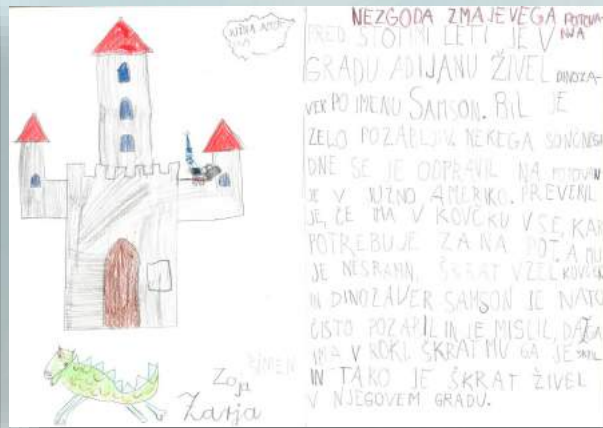 JUŽNA AMERIKA
ŠIMEN
Zoja
Zarja
NEZGODA ZMAJEVEGA POTOVANJA
PRED STOTIMI LETI JE V
GRADU ADIJANU ŽIVEL DINOZA-
VER PO IMENU SAMSON. BIL JE
ZELO POZABLJIV. NEKEGA SONČNEGA
DNE SE JE ODPRAVIL NA POTOVAN
JE V JUŽNO AMERIKO. PREVERIL
JE, ČE IMA V KOVČKU VSE, KAR
POTREBUJE ZA NA POT. A MU
JE NESRAMN ŠKRAT VZEL KOVČEK
IN DINOZAVER SAMSON JE NATO
ČISTO POZABIL IN JE MISLIL, DA GA
IMA V ROKI. ŠKRAT MU GA JE SKRIL
IN TAKO JE ŠKRAT ŽIVEL
V NJEGOVEM GRADU.